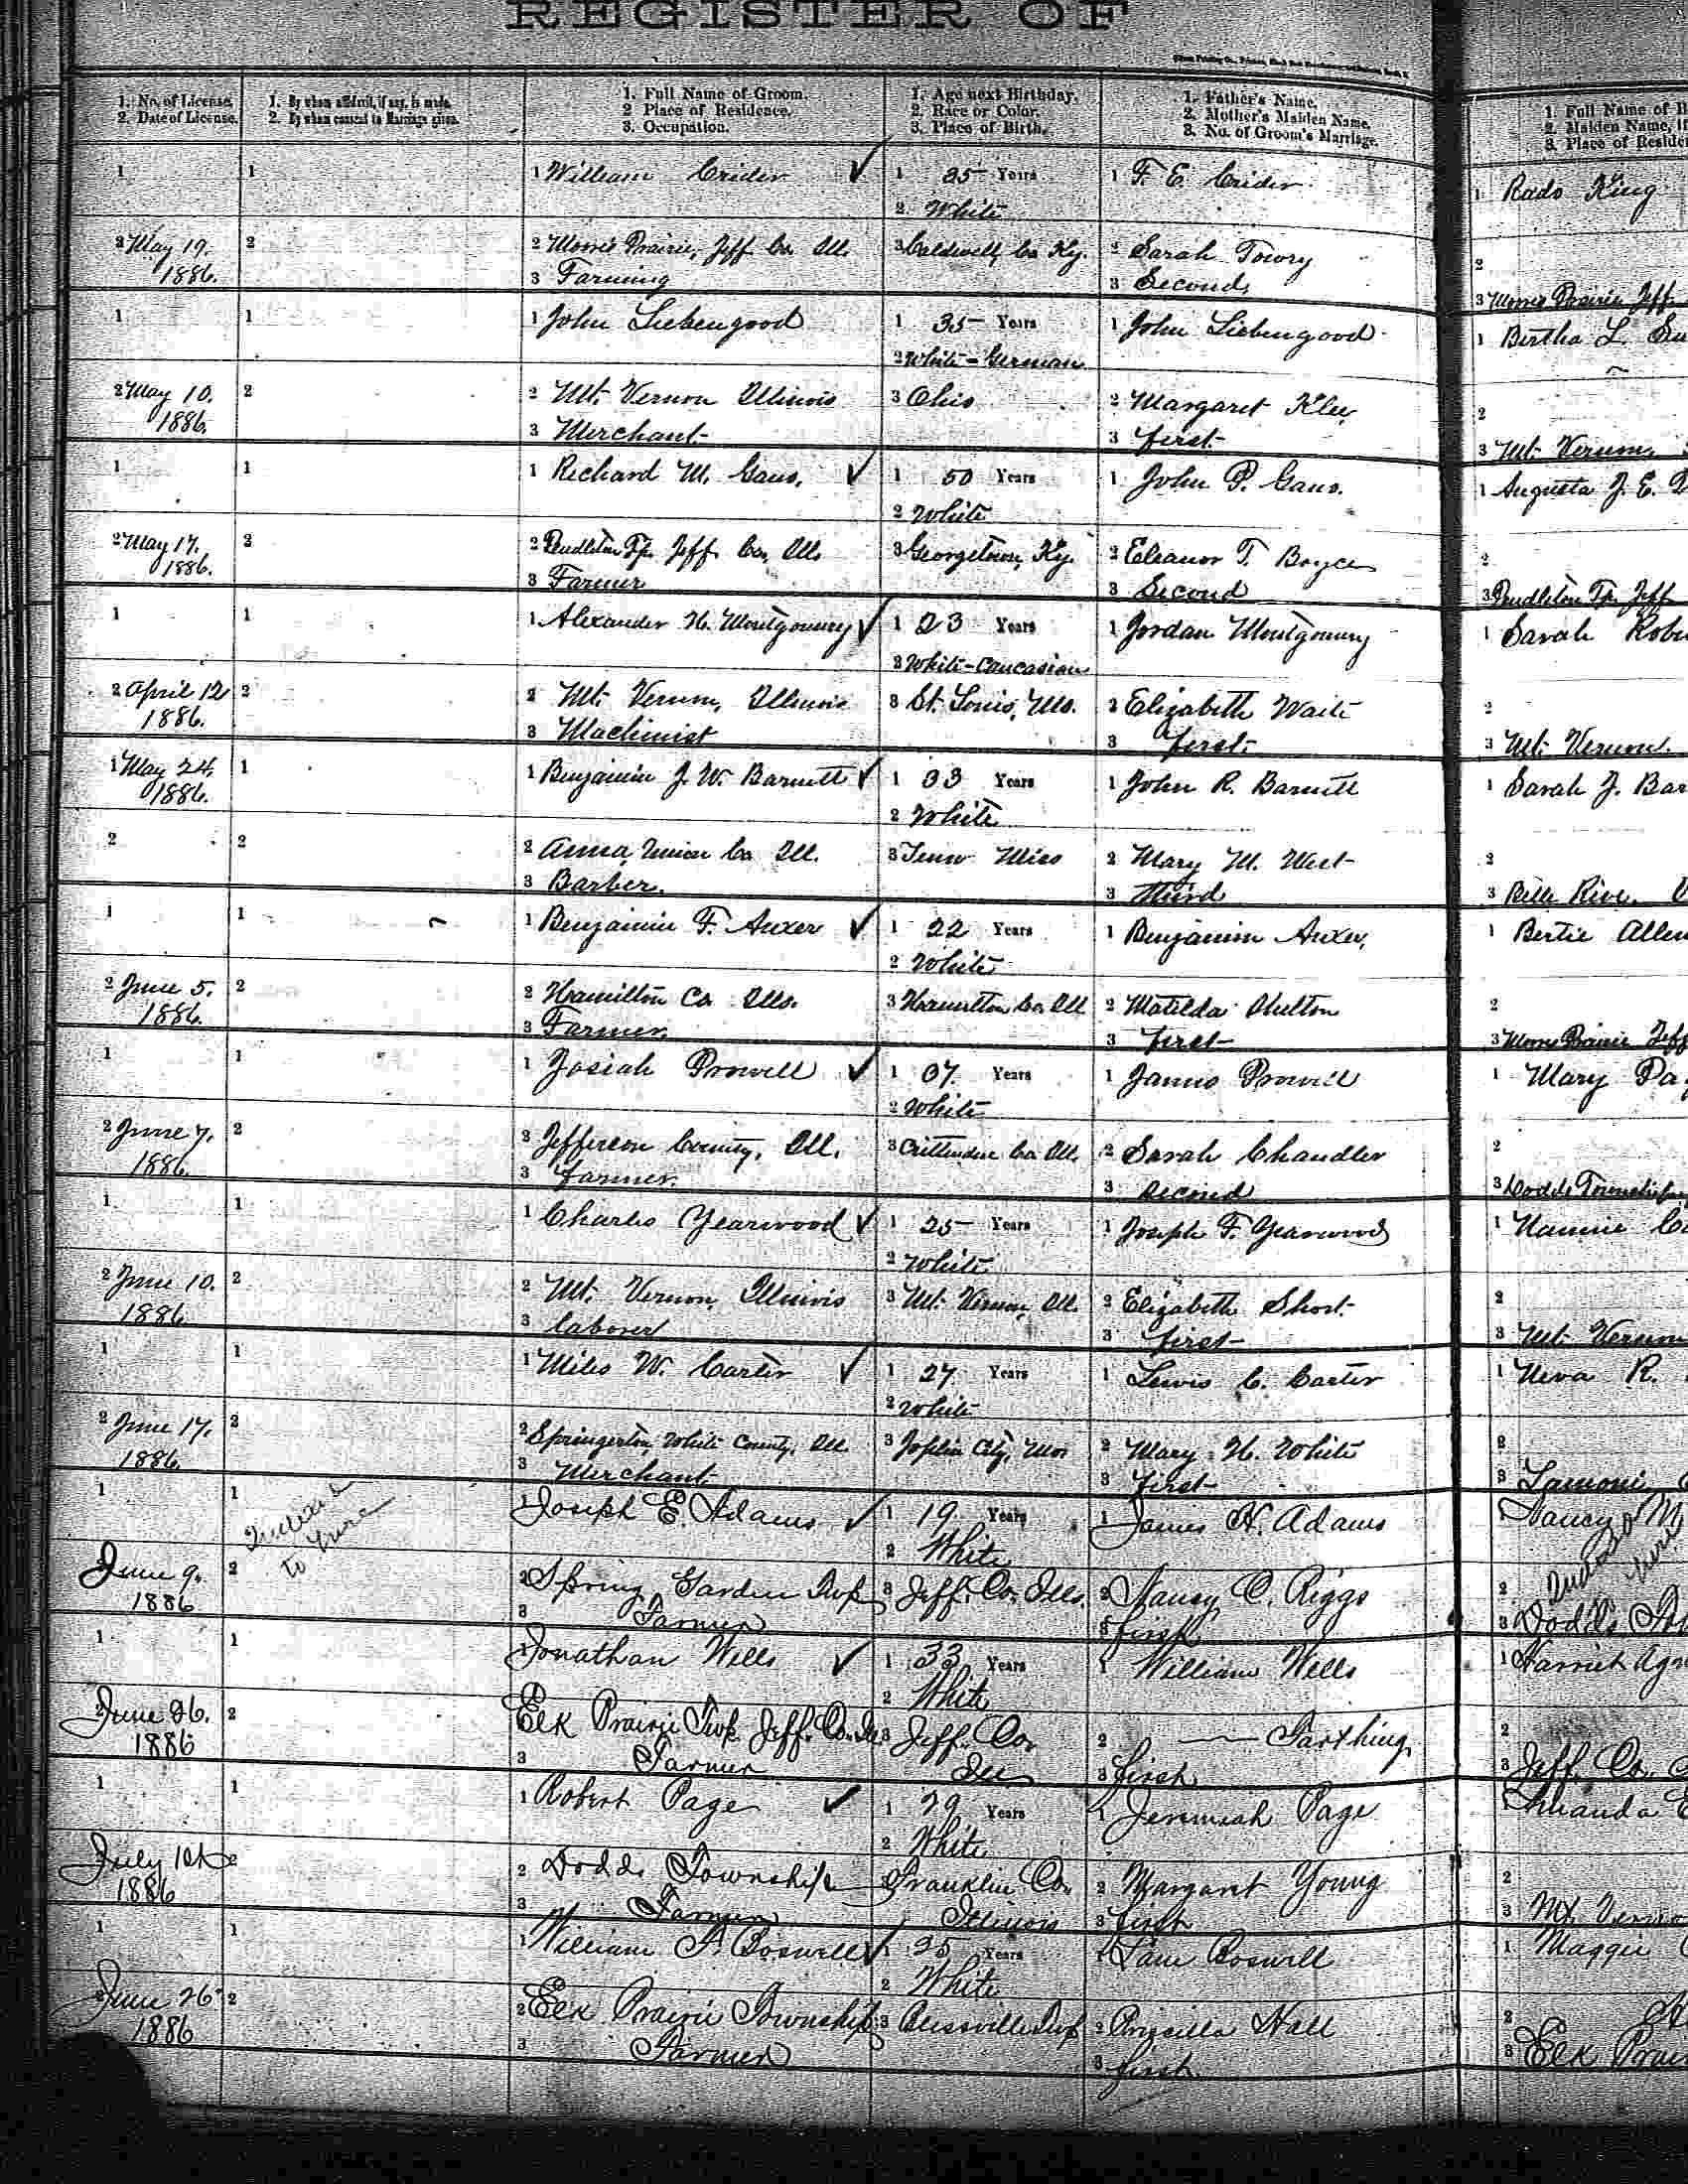 REGISTER OF
1. No. of License. 2. Date of License.
1. By whom affidavit, if any, is made. 2. By whom consent to Marriage given.
1. Full Name of Groom. 2 Place of Residence. 3. Occupation.
1. Age next Birthday. 2. Race or Color. 3. Place of Birth.
1. Father's Name. 2. Mother's Maiden Name. 3. No. of Groom's Marriage.
1. Full Name of B
2. Maiden Name, if
3. Place of Reside
1 1 1 William Crider ✓ 1 35 Years 1 F. E. Crider 1 Rado King
2 White
2 May 19. 1886. 2 2 Moores Prairie, Jeff Co. Ill. 3 Caldwell, Co Ky. 2 Sarah Towry 2
3 Farming 3 Second, 3 Moores Prairie Jeff
1 1 1 John Liebengood 1 35 Years 1 John Liebengood 1 Bertha L.
2 White - German
2 May 10. 1886. 2 2 Mt. Vernon Illinois 3 Ohio 2 Margaret Klee, 2
3 Merchant 3 first 3 Mt. Vernon,
1 1 1 Richard M. Gaus. ✓ 1 50 Years 1 John P. Gaus. 1 Augusta J. E.
2 White
2 May 17. 1886. 2 2 Pendleton Tp. Jeff. Co. Ills 3 Georgetown, Ky. 2 Eleanor T. Boyce 2
3 Farmer 3 Second 3 Pendleton Tp. Jeff
1 1 1 Alexander H. Montgomery ✓ 1 23 Years 1 Jordan Montgomery 1 Sarah Robe
2 White-Caucasian
2 April 12 1886. 2 2 Mt. Vernon, Illinois 3 St. Louis, Mo. 2 Elizabeth Waite 2
3 Machinist 3 first. 3 Mt. Vernon.
1 May 24, 1886. 1 1 Benjamin J. W. Barnett ✓ 1 33 Years 1 John R. Barnett 1 Sarah J. Bar
2 White
2 2 2 Anna, Union Co Ill. 3 Miss 2 Mary M. West 2
3 Barber. 3 third 3 Belle Rive,
1 1 1 Benjamin F. Auxer ✓ 1 22 Years 1 Benjamin Auxer, 1 Bertie Allen
2 White
2 June 5. 1886. 2 2 Hamilton Co Ills. 3 Hamilton Co. Ill 2 Matilda Shelton 2
3 Farmer. 3 first 3 Moores Prairie Jeff
1 1 1 Josiah Prowell ✓ 1 37 Years 1 James Prowell 1 Mary Pa
2 White
2 June 7. 1886. 2 2 Jefferson County, Ill. 3 Crittenden Co Ill. 2 Sarah Chandler 2
3 Farmer. 3 Second 3 Dodds Township
1 1 1 Charles Yearwood ✓ 1 25 Years 1 Joseph F. Yearwood 1 Nannie
2 White
2 June 10. 1886. 2 2 Mt. Vernon, Illinois 3 Mt. Vernon, Ill. 2 Elizabeth Short. 2
3 laborer 3 first 3 Mt. Vernon
1 1 1 Miles W. Carter ✓ 1 27 Years 1 Lewis C. Carter 1 Neva R.
2 White
2 June 17. 1886. 2 2 Springerton, White County, Ill. 3 Joplin City, Mo. 2 Mary H. White 2
3 Merchant 3 first 3 Lamoni
1 1 1 Joseph E. Adams ✓ 1 19 Years 1 James H. Adams 1 Nancy M
2 White
2 June 9. 1886 2 2 Spring Garden Twp 3 Jeff. Co. Ills. 2 Nancy C. Riggs 2
3 Farmer 3 first 3 Dodds
1 1 1 Jonathan Wells ✓ 1 33 Years 1 William Wells 1 Harriet Agn
2 White
2 June 26. 1886 2 2 Elk Prairie Twp. Jeff. Co. Ill 3 Jeff. Co. Ill 2 —— Farthing. 2
3 Farmer 3 first 3 Jeff. Co.
1 1 1 Robert Page ✓ 1 29 Years 1 Jeremiah Page 1 Amanda E
2 White
2 July 1st 1886 2 2 Dodds Township 3 Franklin Co. Illinois 2 Margaret Young 2
3 Farmer 3 first 3 Mt. Verno
1 1 1 William P. Boswell ✓ 1 25 Years 1 Lane Boswell 1 Maggie
2 White
2 June 26 1886 2 2 Elk Prairie Township 3 Blissville Twp 2 Priscilla Hall 2
3 Farmer 3 first 3 Elk Prair